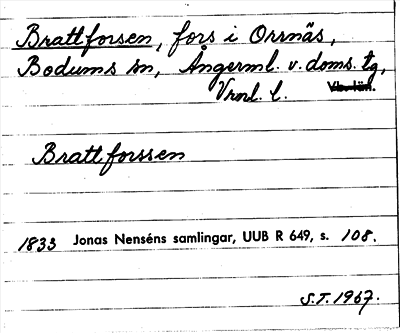 Brattforsen, fors i Orrnäs,
Bodums sn, Ångerml. v. doms. tg,
Vrnl. l. Vbn län.
Brattforssen
1833 Jonas Nenséns samlingar, UUB R 649, s. 108.
S.T. 1967.